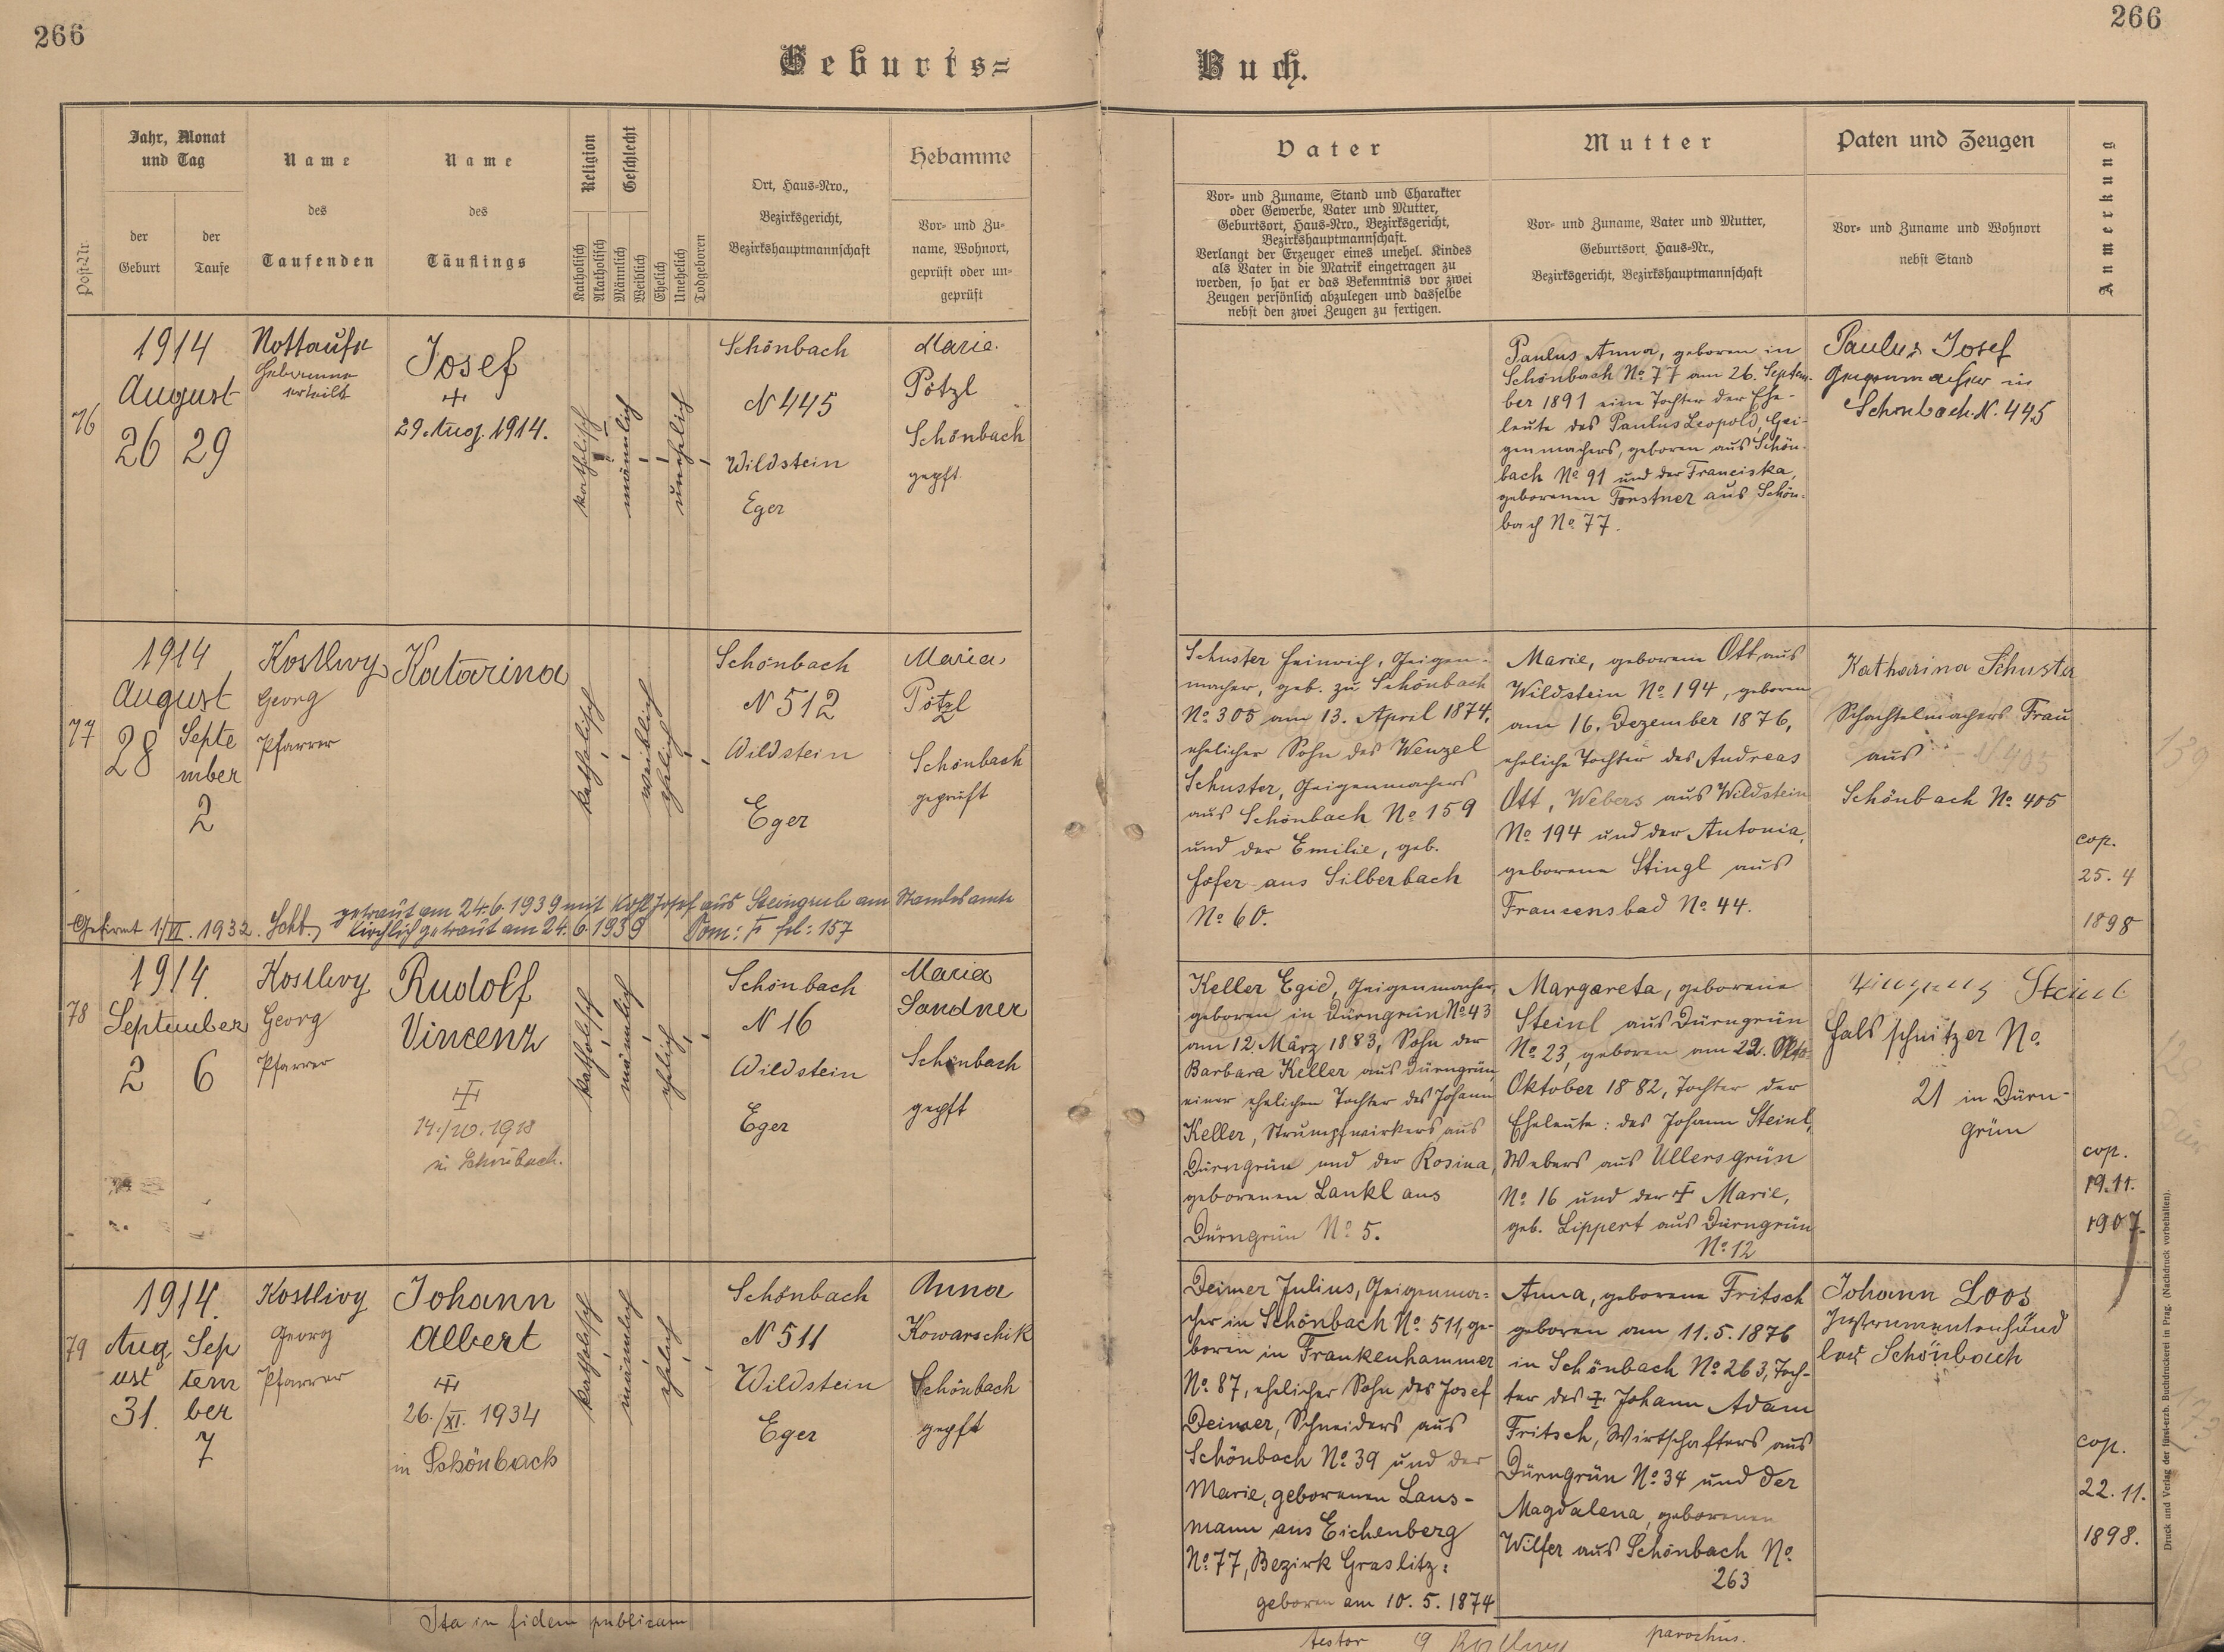 266
266
Geburts=
Buch.
Post-Nr.
Jahr, Monat
und Tag
der
Geburt
der
Taufe
Name
des
Taufenden
Name
des
Täuflings
Religion
Katholisch
Akatholisch
Geschlecht
Männlich
Weiblich
Ehelich
Unehelich
Todgeboren
Ort, Haus=Nro.,
Bezirksgericht,
Bezirkshauptmannschaft
Hebamme
Vor= und Zu=
name, Wohnort,
geprüft oder un=
geprüft
Vater
Vor= und Zuname, Stand und Charakter
oder Gewerbe, Vater und Mutter,
Geburtsort, Haus=Nro., Bezirksgericht,
Bezirkshauptmannschaft.
Verlangt der Erzeuger eines unehel. Kindes
als Vater in die Matrik eingetragen zu
werden, so hat er das Bekenntnis vor zwei
Zeugen persönlich abzulegen und dasselbe
nebst den zwei Zeugen zu fertigen.
Mutter
Vor= und Zuname, Vater und Mutter,
Geburtsort, Haus=Nr.,
Bezirksgericht, Bezirkshauptmannschaft
Paten und Zeugen
Vor= und Zuname und Wohnort
nebst Stand
Anmerkung
76
1914
August
26 29
Nottaufe
Hebamme
erteilt
Josef
+
29. Aug. 1914.
katholisch
männlich
unehelich
Schönbach
N 445
Wildstein
Eger
Marie
Pötzl
Schönbach
gepft
Paulus Anna, geboren in
Schönbach No 77 am 26. Septem-
ber 1891 eine Tochter der Ehe-
leute des Paulus Leopold, Gei-
genmachers, geboren aus Schön-
bach No 91 und der Franciska,
geborenen Forstner aus Schön-
bach No 77.
Paulus Josef
Geigenmacher in
Schönbach N. 445
77
1914
August
28
Septe
mber
2
Kostlivy
Georg
Pfarrer
Katarina
katholisch
weiblich
ehelich
Schönbach
N 512
Wildstein
Eger
Maria
Pötzl
Schönbach
geprüft
Gefirmt 1/VI. 1932. Schb.
getraut am 24.6.1939 mit Josef aus Steingrub am Standesamte
kirchlich getraut am 24.6.1939 Tom: F fol: 157
Schuster Heinrich, Geigen-
macher, geb. zu Schönbach
No 305 am 13. April 1874,
ehelicher Sohn des Wenzel
Schuster, Geigenmachers
aus Schönbach No 159
und der Emilie, geb.
Hofer aus Silberbach
No 60.
Marie, geborene Ott aus
Wildstein No 194, geboren
am 16. Dezember 1876,
eheliche Tochter des Andreas
Ott, Webers aus Wildstein
No 194 und der Antonia,
geborene Stingl aus
Francensbad No 44.
Katharina Schuster
Schachtelmachers Frau
aus
Schönbach No 405
cop.
25. 4
1898
139
78
1914.
September
2 6
Kostlivy
Georg
Pfarrer
Rudolf
Vincenz
+
in Schönbach.
katholisch
männlich
ehelich
Schönbach
N 16
Wildstein
Eger
Maria
Sandner
Schönbach
gepft
Keller Egid, Geigenmacher,
geboren in Dürngrün No 43
am 12. März 1883, Sohn der
Barbara Keller aus Dürngrün,
einer ehelichen Tochter des Johann
Keller, Strumpfwirkers aus
Dürngrün und der Rosina,
geborenen Lankl aus
Dürngrün No 5.
Margareta, geborene
Steinl aus Dürngrün
No 23, geboren am 22. Okto-
Oktober 1882, Tochter der
Eheleute: des Johann Steinl,
Webers aus Ullersgrün
No 16 und der + Marie,
geb. Lippert aus Dürngrün
No 12
Steinl
Halsschnitzer No
21 in Dürn-
grün
cop.
19.11.
1907.
79
1914.
Aug
ust
31.
Sep
tem
ber
7
Kostlivy
Georg
Pfarrer
Johann
Albert
+
26./XI. 1934
in Schönbach
katholisch
männlich
ehelich
Schönbach
N 511
Wildstein
Eger
Anna
Kowarschik
Schönbach
gepft
Deimer Julius, Geigenma=
cher in Schönbach No 511, ge-
boren in Frankenhammer
No 87, ehelicher Sohn des Josef
Deimer, Schneiders aus
Schönbach No 39 und der
Marie, geborenen Laus-
mann aus Eichenberg
No 77, Bezirk Graslitz:
geboren am 10. 5. 1874
Anna, geborene Fritsch
geboren am 11.5.1876
in Schönbach No 263, Toch-
ter des + Johann Adam
Fritsch, Wirtschafters aus
Dürngrün No 34 und der
Magdalena, geborenen
Wilfer aus Schönbach No
263
Johann Loos
Instrumentenhänd
ler Schönbach
cop.
22. 11.
1898.
173
Ita in fidem publicam
testor G Kostlivy parochus.
Druck und Verlag der fürst-erzb. Buchdruckerei in Prag. (Nachdruck vorbehalten).